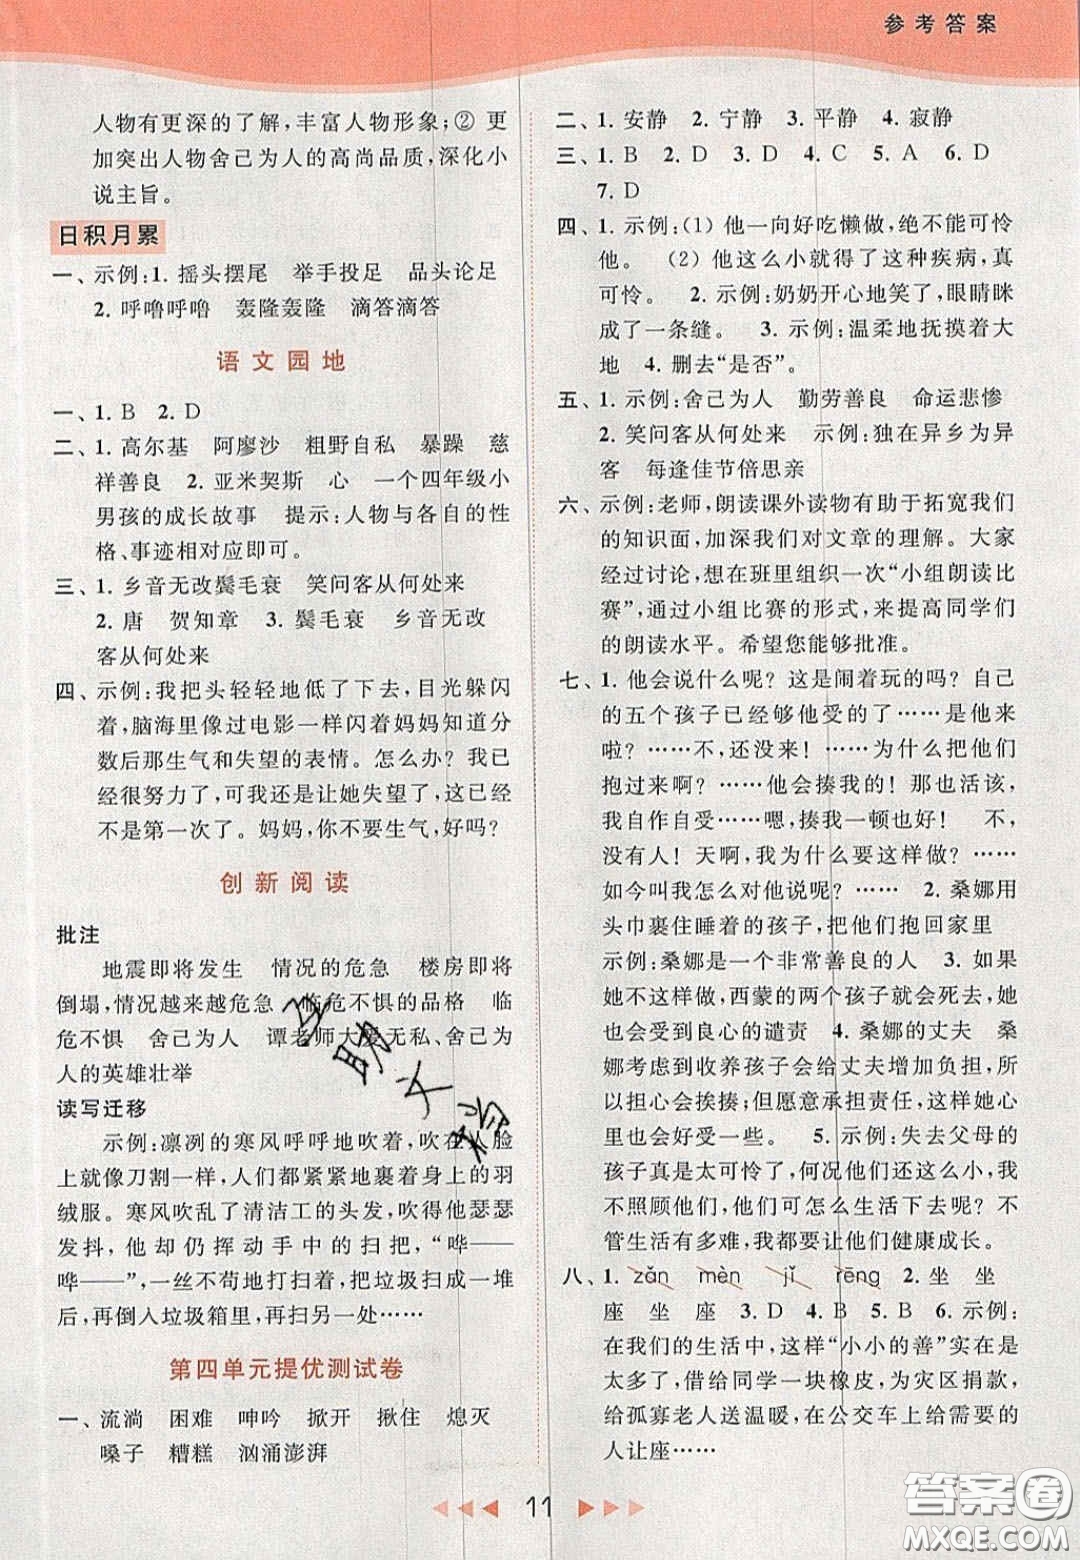 参考答案
人物有更深的了解，丰富人物形象；② 更
加突出人物舍己为人的高尚品质，深化小
说主旨。
日积月累
一、示例：1. 摇头摆尾 举手投足 品头论足
2. 呼噜呼噜 轰隆轰隆 滴答滴答
语文园地
一、1. B 2. D
二、1. 高尔基 阿廖沙 粗野自私 暴躁 慈
祥善良 2. 亚米契斯 心 一个四年级小
男孩的成长故事 提示：人物与各自的性
格、事迹相对应即可。
三、1. 乡音无改鬓毛衰 笑问客从何处来
2. 唐 贺知章 3. 鬓毛衰 乡音无改
客从何处来
四、示例：我把头轻轻地低了下去，目光躲闪
着，脑海里像过电影一样闪着妈妈知道分
数后那生气和失望的表情。怎么办？我已
经很努力了，可我还是让她失望了，这已经
不是第一次了。妈妈，你不要生气，好吗？
创新阅读
批注
地震即将发生 情况的危急 楼房即将
倒塌，情况越来越危急 临危不惧的品格 临
危不惧 舍己为人 谭老师大爱无私、舍己为
人的英雄壮举
读写迁移
示例：凛冽的寒风呼呼地吹着，吹在人脸
上就像刀割一样，人们都紧紧地裹着身上的羽
绒服。寒风吹乱了清洁工的头发，吹得他瑟瑟
发抖，他却仍挥动手中的扫把，“哗——
哗——”，一丝不苟地打扫着，把垃圾扫成一堆
再倒入垃圾箱里，再扫另一处……
第四单元提优测试卷
一、流淌 困难 呻吟 掀开 揪住 熄灭
嗓子 糟糕 汹涌澎湃
二、1. 安静 2. 宁静 3. 平静 4. 寂静
三、1. B 2. D 3. D 4. C 5. A 6. D
7. D
四、1. 示例：（1）他一向好吃懒做，绝不能可怜
他。 （2）他这么小就得了这种疾病，真
可怜。 2. 示例：奶奶开心地笑了，眼睛眯
成了一条缝。 3. 示例：温柔地抚摸着大
地 4. 删去“是否”。
五、1. 示例：舍己为人 勤劳善良 命运悲惨
2. 笑问客从何处来 示例：独在异乡为异
客 每逢佳节倍思亲
六、示例：老师，朗读课外读物有助于拓宽我们
的知识面，加深我们对文章的理解。大家
经过讨论，想在班里组织一次“小组朗读比
赛”，通过小组比赛的形式，来提高同学们
的朗读水平。希望您能够批准。
七、1. 他会说什么呢？这是闹着玩的吗？自己
的五个孩子已经够他受的了……是他来
啦？……不，还没来！……为什么把他们
抱过来啊？……他会揍我的！那也活该，
我自作自受……嗯，揍我一顿也好！ 不，
没有人！天啊，我为什么要这样做？……
如今叫我怎么对他说呢？…… 2. 桑娜用
头巾裹住睡着的孩子，把他们抱回家里
示例：桑娜是一个非常善良的人 3. 如果桑
娜不这样做，西蒙的两个孩子就会死去，她
也会受到良心的谴责 4. 桑娜的丈夫 桑
娜考虑到收养孩子会给丈夫增加负担，所
以担心会挨揍；但又愿意承担责任，这样她心
里会好受一些。 5. 示例：失去父母的
孩子真是太可怜了，何况他们还这么小，我
不照顾他们，他们怎么生活下去呢？不
管生活有多难，我也要让他们健康成长。
八、1. zǎn mèn jǐ rēng 2. 坐 坐
座 坐 座 3. D 4. B 5. B 6. 示例：
在我们的生活中，这样“小小的善”实在是太
多了，借给同学一块橡皮，为灾区捐款，
给孤寡老人送温暖，在公交车上给需要的
人让座……
11
答案圈
MXQE.COM